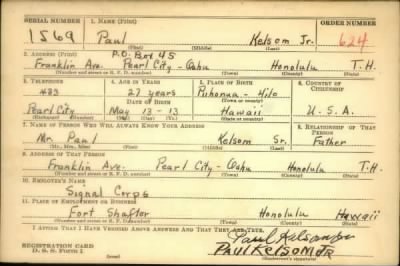 SERIAL NUMBER 1. NAME (Print) ORDER NUMBER
1569 Paul Kelsom Jr. 624
(First) (Middle) (Last)
2. ADDRESS (Print) P.O. Box 45
Franklin Ave. Pearl City - Oahu Honolulu T.H.
(Number and street or R. F. D. number) (Town) (County) (State)
3. TELEPHONE 4. AGE IN YEARS 5. PLACE OF BIRTH 6. COUNTRY OF CITIZENSHIP
483 27 years Pihonua - Hilo
DATE OF BIRTH (Town or county)
Pearl City May - 13 - 13 Hawaii U.S.A.
(Exchange) (Mo.) (Day) (Yr.) (State or country)
7. NAME OF PERSON WHO WILL ALWAYS KNOW YOUR ADDRESS 8. RELATIONSHIP OF THAT PERSON
Mr. Paul Kelsom Sr. Father
(Mr., Mrs., Miss) (First) (Middle) (Last)
9. ADDRESS OF THAT PERSON
Franklin Ave. Pearl City - Oahu Honolulu T.H.
(Number and street or R. F. D. number) (Town) (County) (State)
10. EMPLOYER'S NAME
Signal Corps
11. PLACE OF EMPLOYMENT OR BUSINESS
Fort Shafter Honolulu Hawaii
(Number and street or R. F. D. number) (Town) (County) (State)
I AFFIRM THAT I HAVE VERIFIED ABOVE ANSWERS AND THAT THEY ARE TRUE.
Paul Kelsom Jr
REGISTRATION CARD Paul Kelsom JR
D. S. S. Form 1 (Registrant's signature)